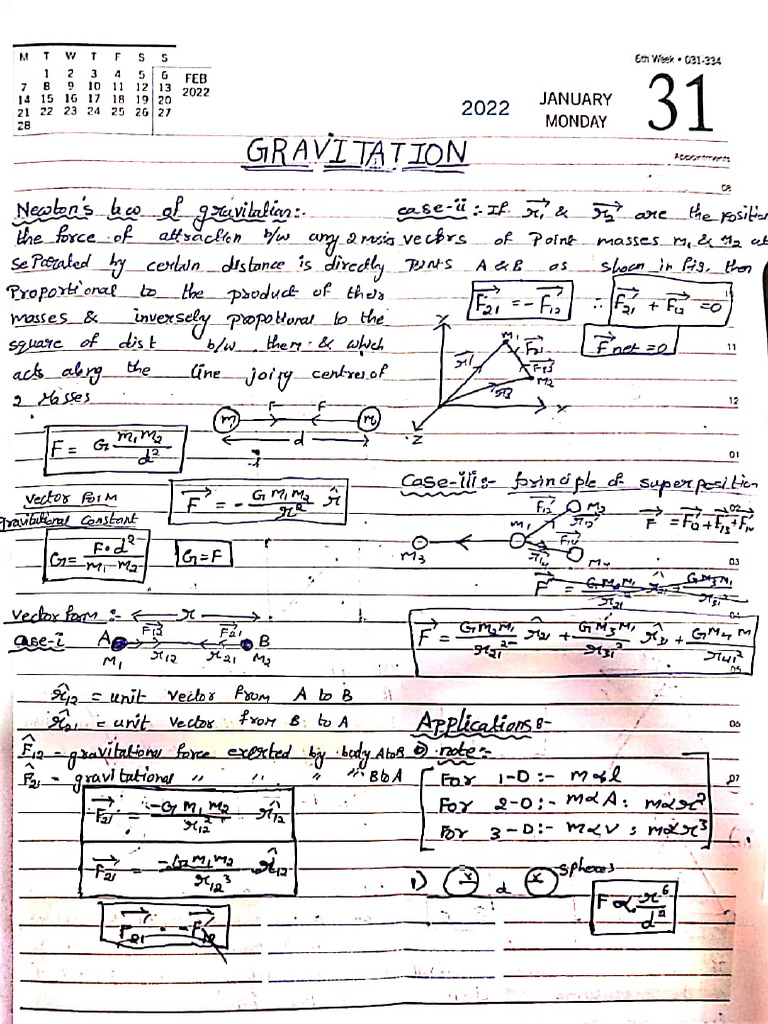 M T W T F S S
1 2 3 4 5 6
7 8 9 10 11 12 13
14 15 16 17 18 19 20
21 22 23 24 25 26 27
28
FEB
2022
2022
JANUARY
MONDAY
31
6th Week • 031-334
Appointments
GRAVITATION
08
Newton's law of gravitation:-
the force of attraction b/w any 2 mass
seperated by certain distance is directly
Proportional to the product of their
masses & inversely propotional to the
square of dist b/w them & which
acts along the line joing centres of
2 Masses
m1 F F m2
d
F = G m1m2/d²
Vector Form
F⃗ = - G M1M2/r² r̂
gravitational constant
G = F·d²/m1-m2
G=F
vector form :- r
case-i A F⃗12 F⃗21 B
M1 r12 r21 M2
r̂12 = unit vector from A to B
r̂21 = unit vector from B to A
F̂12 - gravitational force exerted by body A to B
F̂21 - gravitational " " " " B to A
F⃗21 = -G m1m2/r12² r̂12
F⃗21 = -G m1m2/r12³ r̂12
F⃗21 = -F⃗12
case-ii :- If r⃗1 & r⃗2 are the position
vectors of Point masses m1 & m2 at
points A & B as shown in fig, then
F⃗21 = -F⃗12 ∴ F⃗21 + F⃗12 = 0
F⃗net = 0
11
Y m1 F⃗21
r⃗1 F⃗12
M2
X
-Z
12
01
Case-iii:- principle of superposition
02
F⃗12 M2
m1 r⃗12
F⃗ = F⃗12+F⃗13+F⃗14
M3 F⃗14
r⃗14 M4
03
F⃗ = GM2M1/r21² r̂21 + GM3M1/r31²
04
F⃗ = GM2M1/r21² r̂21 + GM3M1/r31² r̂31 + GM4M/r41²
05
06
Applications:-
note:-
07
For 1-D :- m∝l
For 2-D :- m∝A : m∝r²
For 3-D :- m∝V : m∝r³
1) r d r spheres
F ∝ r⁶/d²